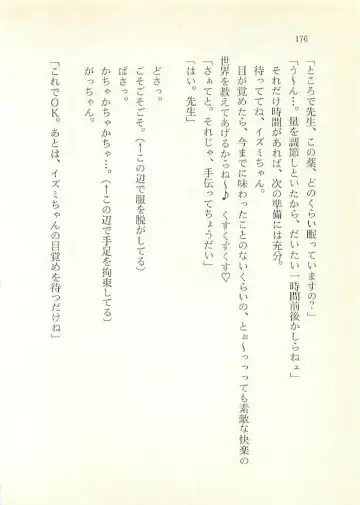 176
「ところで先生、この薬、どのくらい眠っていますの?」
「う〜ん…。量を調節しといたから、だいたい一時間前後かしらねェ」
それだけ時間があれば、次の準備には充分。
待っててね、イズミちゃん。
目が覚めたら、今までに味わったことのないくらいの、とぉ〜っっっても素敵な快楽の
世界を教えてあげるからね〜♪ くすくすくす♡
「さぁてと。それじゃ、手伝ってちょうだい」
「はい。先生」
どさっ。
ごそごそごそ。(←この辺で服を脱がしてる)
ばさっ。
かちゃかちゃかちゃ…。(←この辺で手足を拘束してる)
がっちゃん。
「これでOK。あとは、イズミちゃんの目覚めを待つだけね」